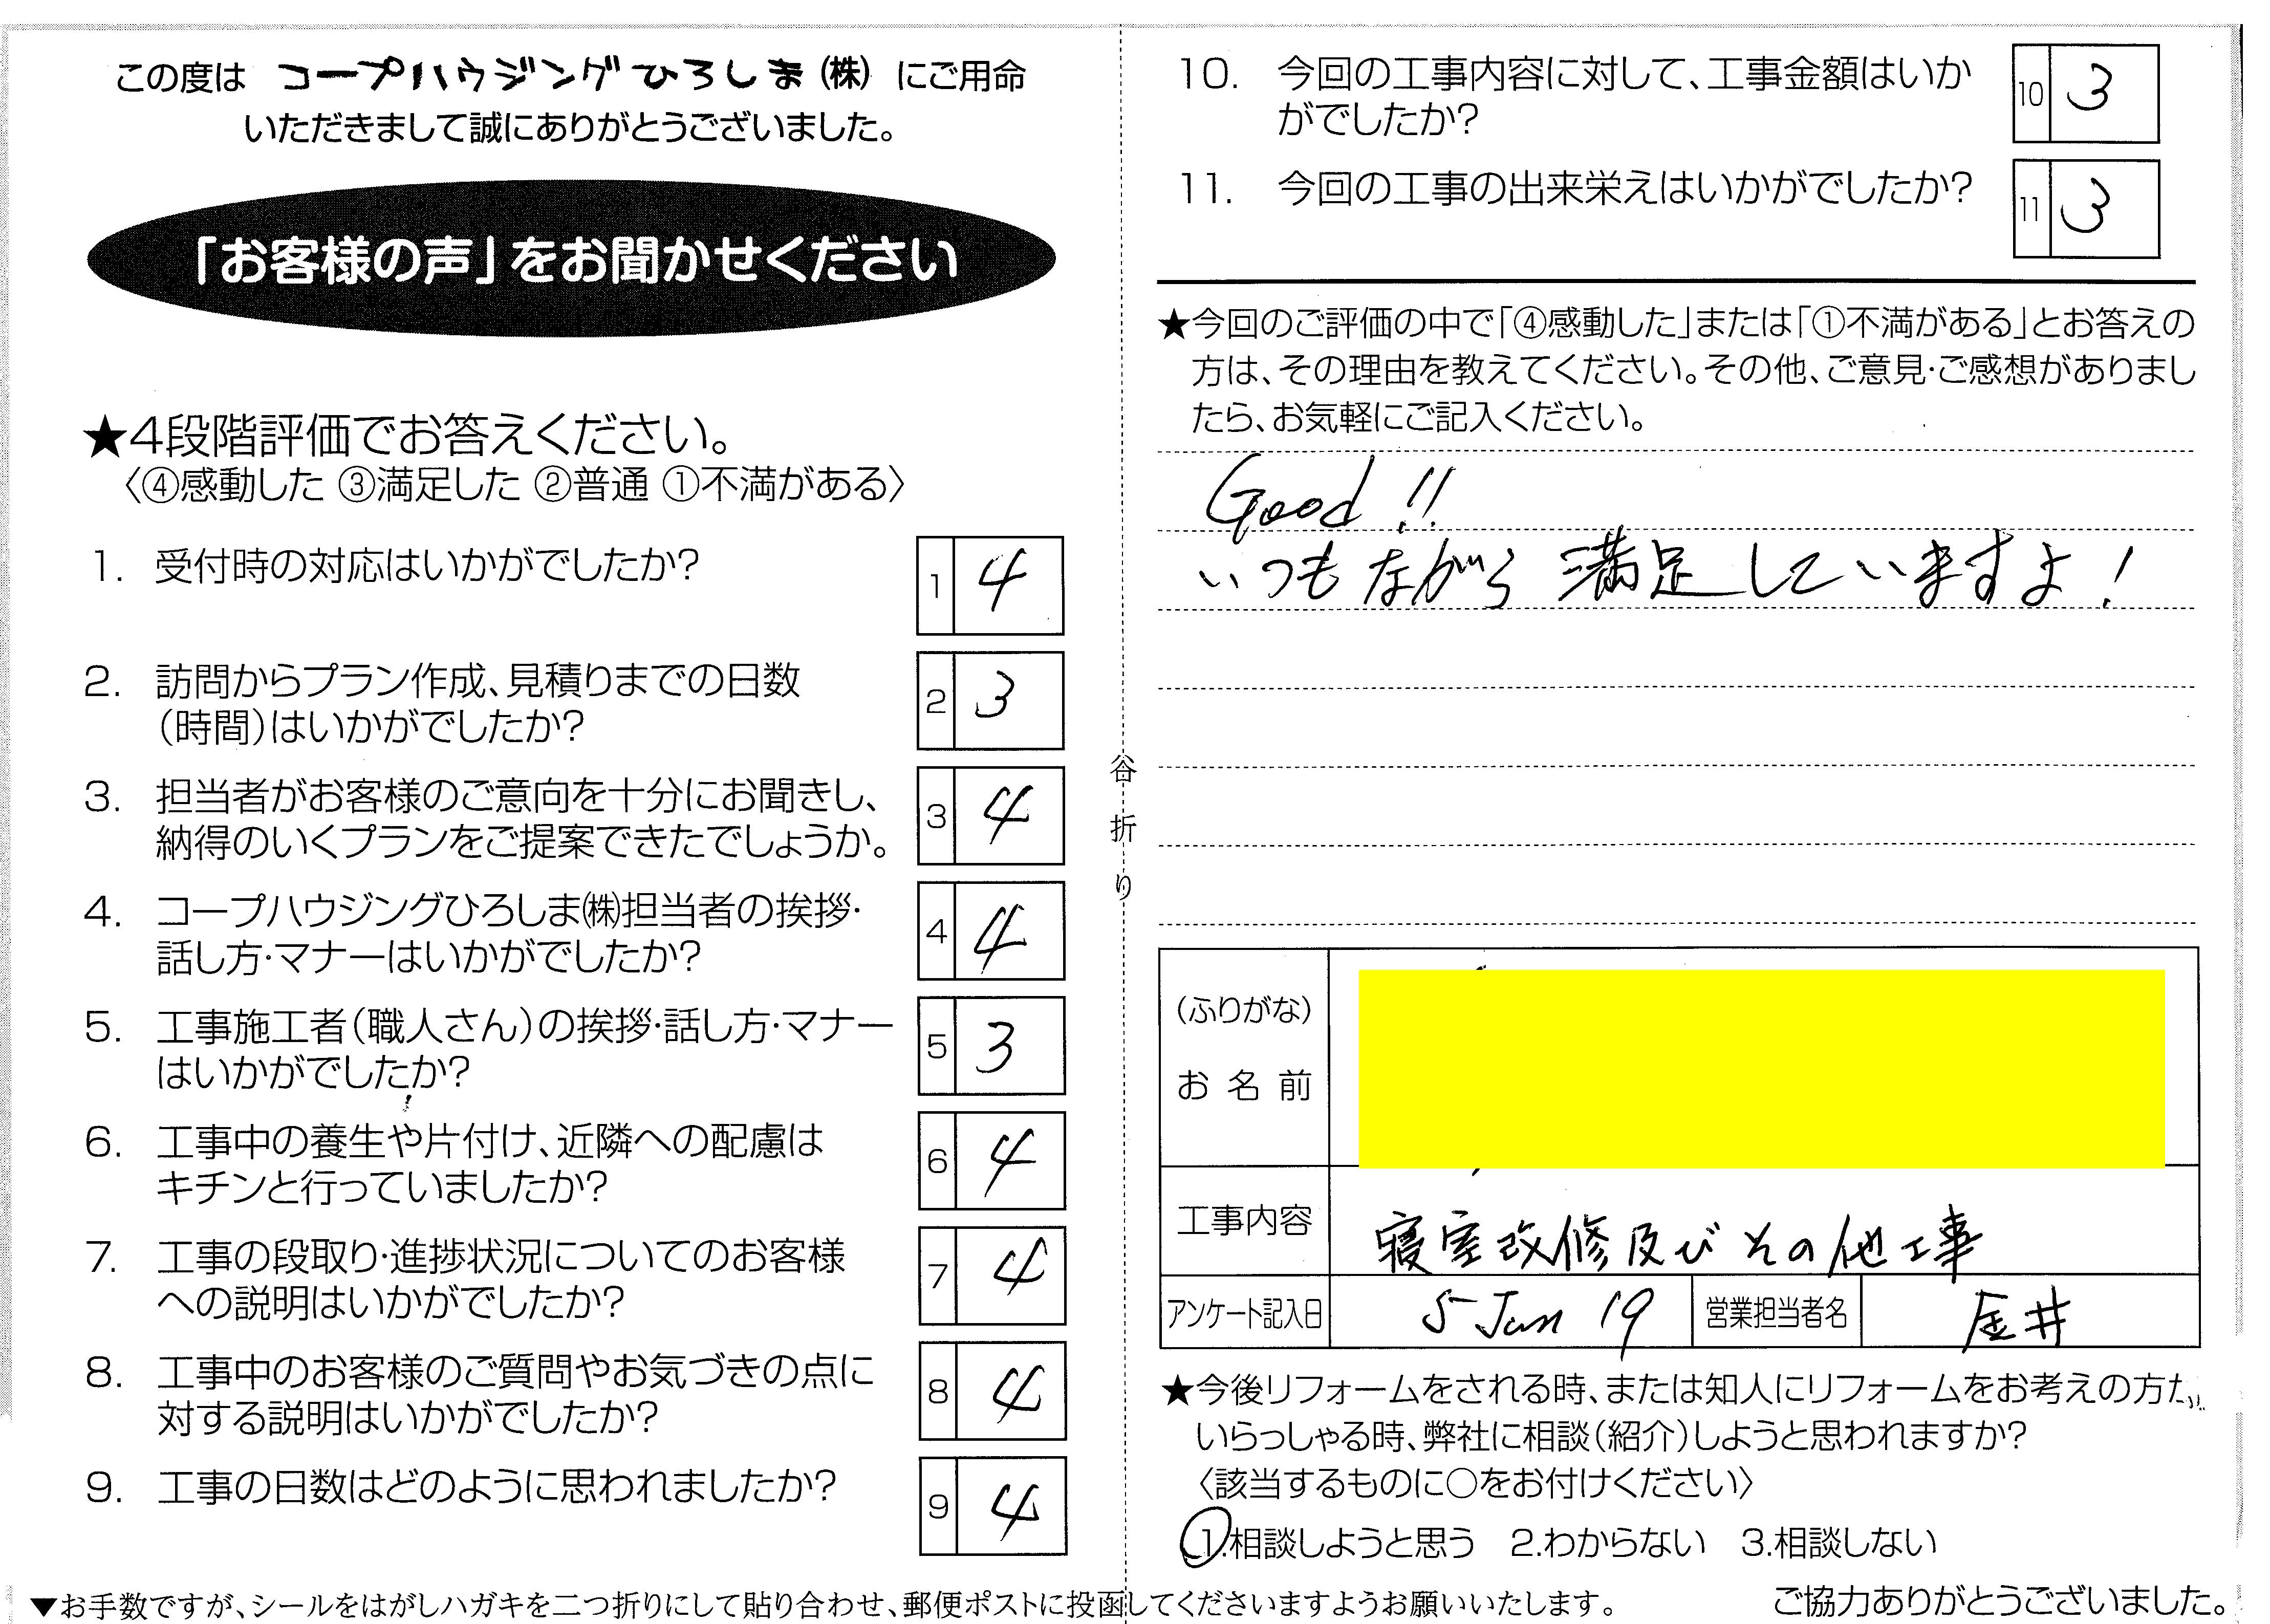 この度は コープハウジングひろしま(株) にご用命
いただきまして誠にありがとうございました。
「お客様の声」をお聞かせください
★4段階評価でお答えください。
〈④感動した ③満足した ②普通 ①不満がある〉
1. 受付時の対応はいかがでしたか?
1 4
2. 訪問からプラン作成、見積りまでの日数
(時間)はいかがでしたか?
2 3
3. 担当者がお客様のご意向を十分にお聞きし、
納得のいくプランをご提案できたでしょうか。
3 4
4. コープハウジングひろしま㈱担当者の挨拶・
話し方・マナーはいかがでしたか?
4 4
5. 工事施工者(職人さん)の挨拶・話し方・マナー
はいかがでしたか?
5 3
6. 工事中の養生や片付け、近隣への配慮は
キチンと行っていましたか?
6 4
7. 工事の段取り・進捗状況についてのお客様
への説明はいかがでしたか?
7 4
8. 工事中のお客様のご質問やお気づきの点に
対する説明はいかがでしたか?
8 4
9. 工事の日数はどのように思われましたか?
9 4
谷折り
10. 今回の工事内容に対して、工事金額はいか
がでしたか?
10 3
11. 今回の工事の出来栄えはいかがでしたか?
11 3
★今回のご評価の中で「④感動した」または「①不満がある」とお答えの
方は、その理由を教えてください。その他、ご意見・ご感想がありまし
たら、お気軽にご記入ください。
Good!!
いつもながら満足していますよ!
(ふりがな)
お名前
工事内容 寝室改修及びその他工事
アンケート記入日 5 Jan 19 営業担当者名 金井
★今後リフォームをされる時、または知人にリフォームをお考えの方が
いらっしゃる時、弊社に相談(紹介)しようと思われますか?
〈該当するものに○をお付けください〉
1.相談しようと思う 2.わからない 3.相談しない
▼お手数ですが、シールをはがしハガキを二つ折りにして貼り合わせ、郵便ポストに投函してくださいますようお願いいたします。
ご協力ありがとうございました。